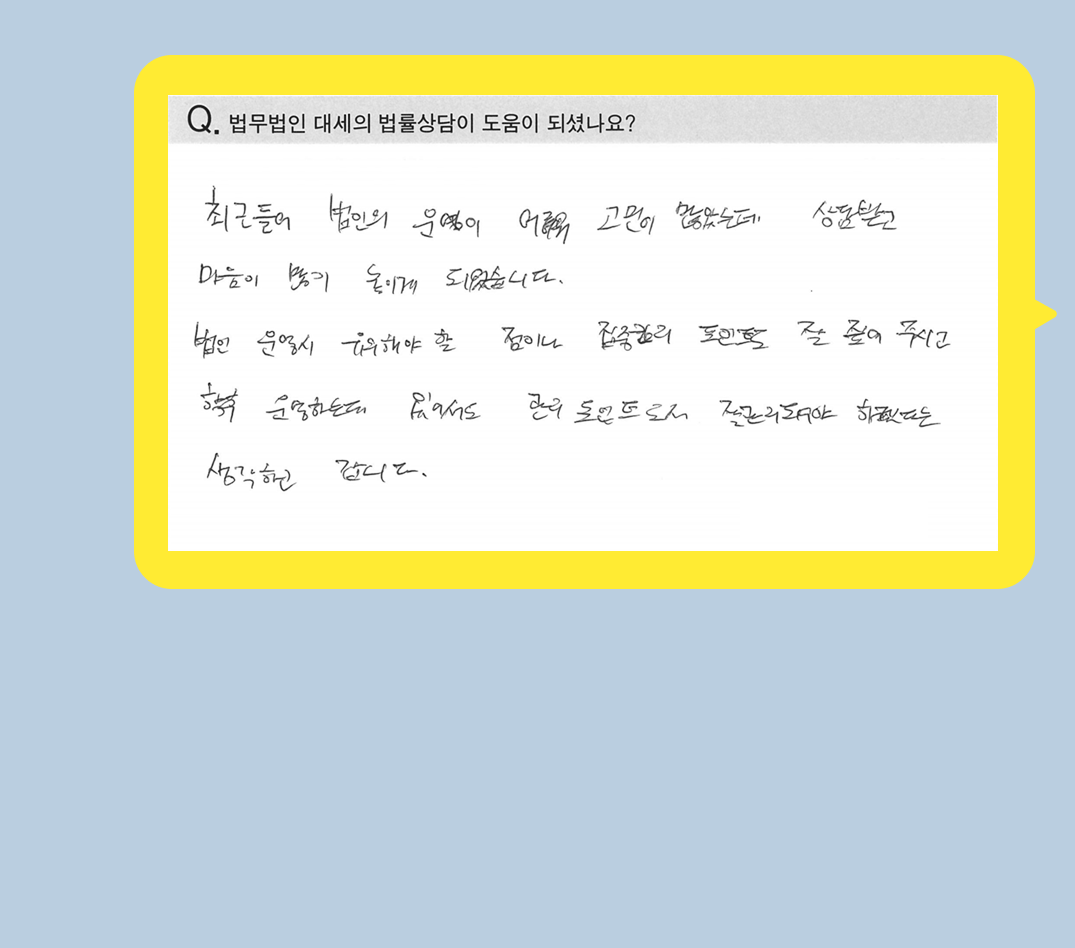 Q. 법무법인 대세의 법률상담이 도움이 되셨나요?
최근들어 법인의 운영이 고민이 많았는데 상담받고
마음이 놓이게 되었습니다.
법인 운영시 유의해야 할 점이나 집중관리 포인트를 잘 짚어 주시고
운영하는데 있어서도 관리 포인트로서 잘 관리되어야 하겠다는
생각하고 갑니다.